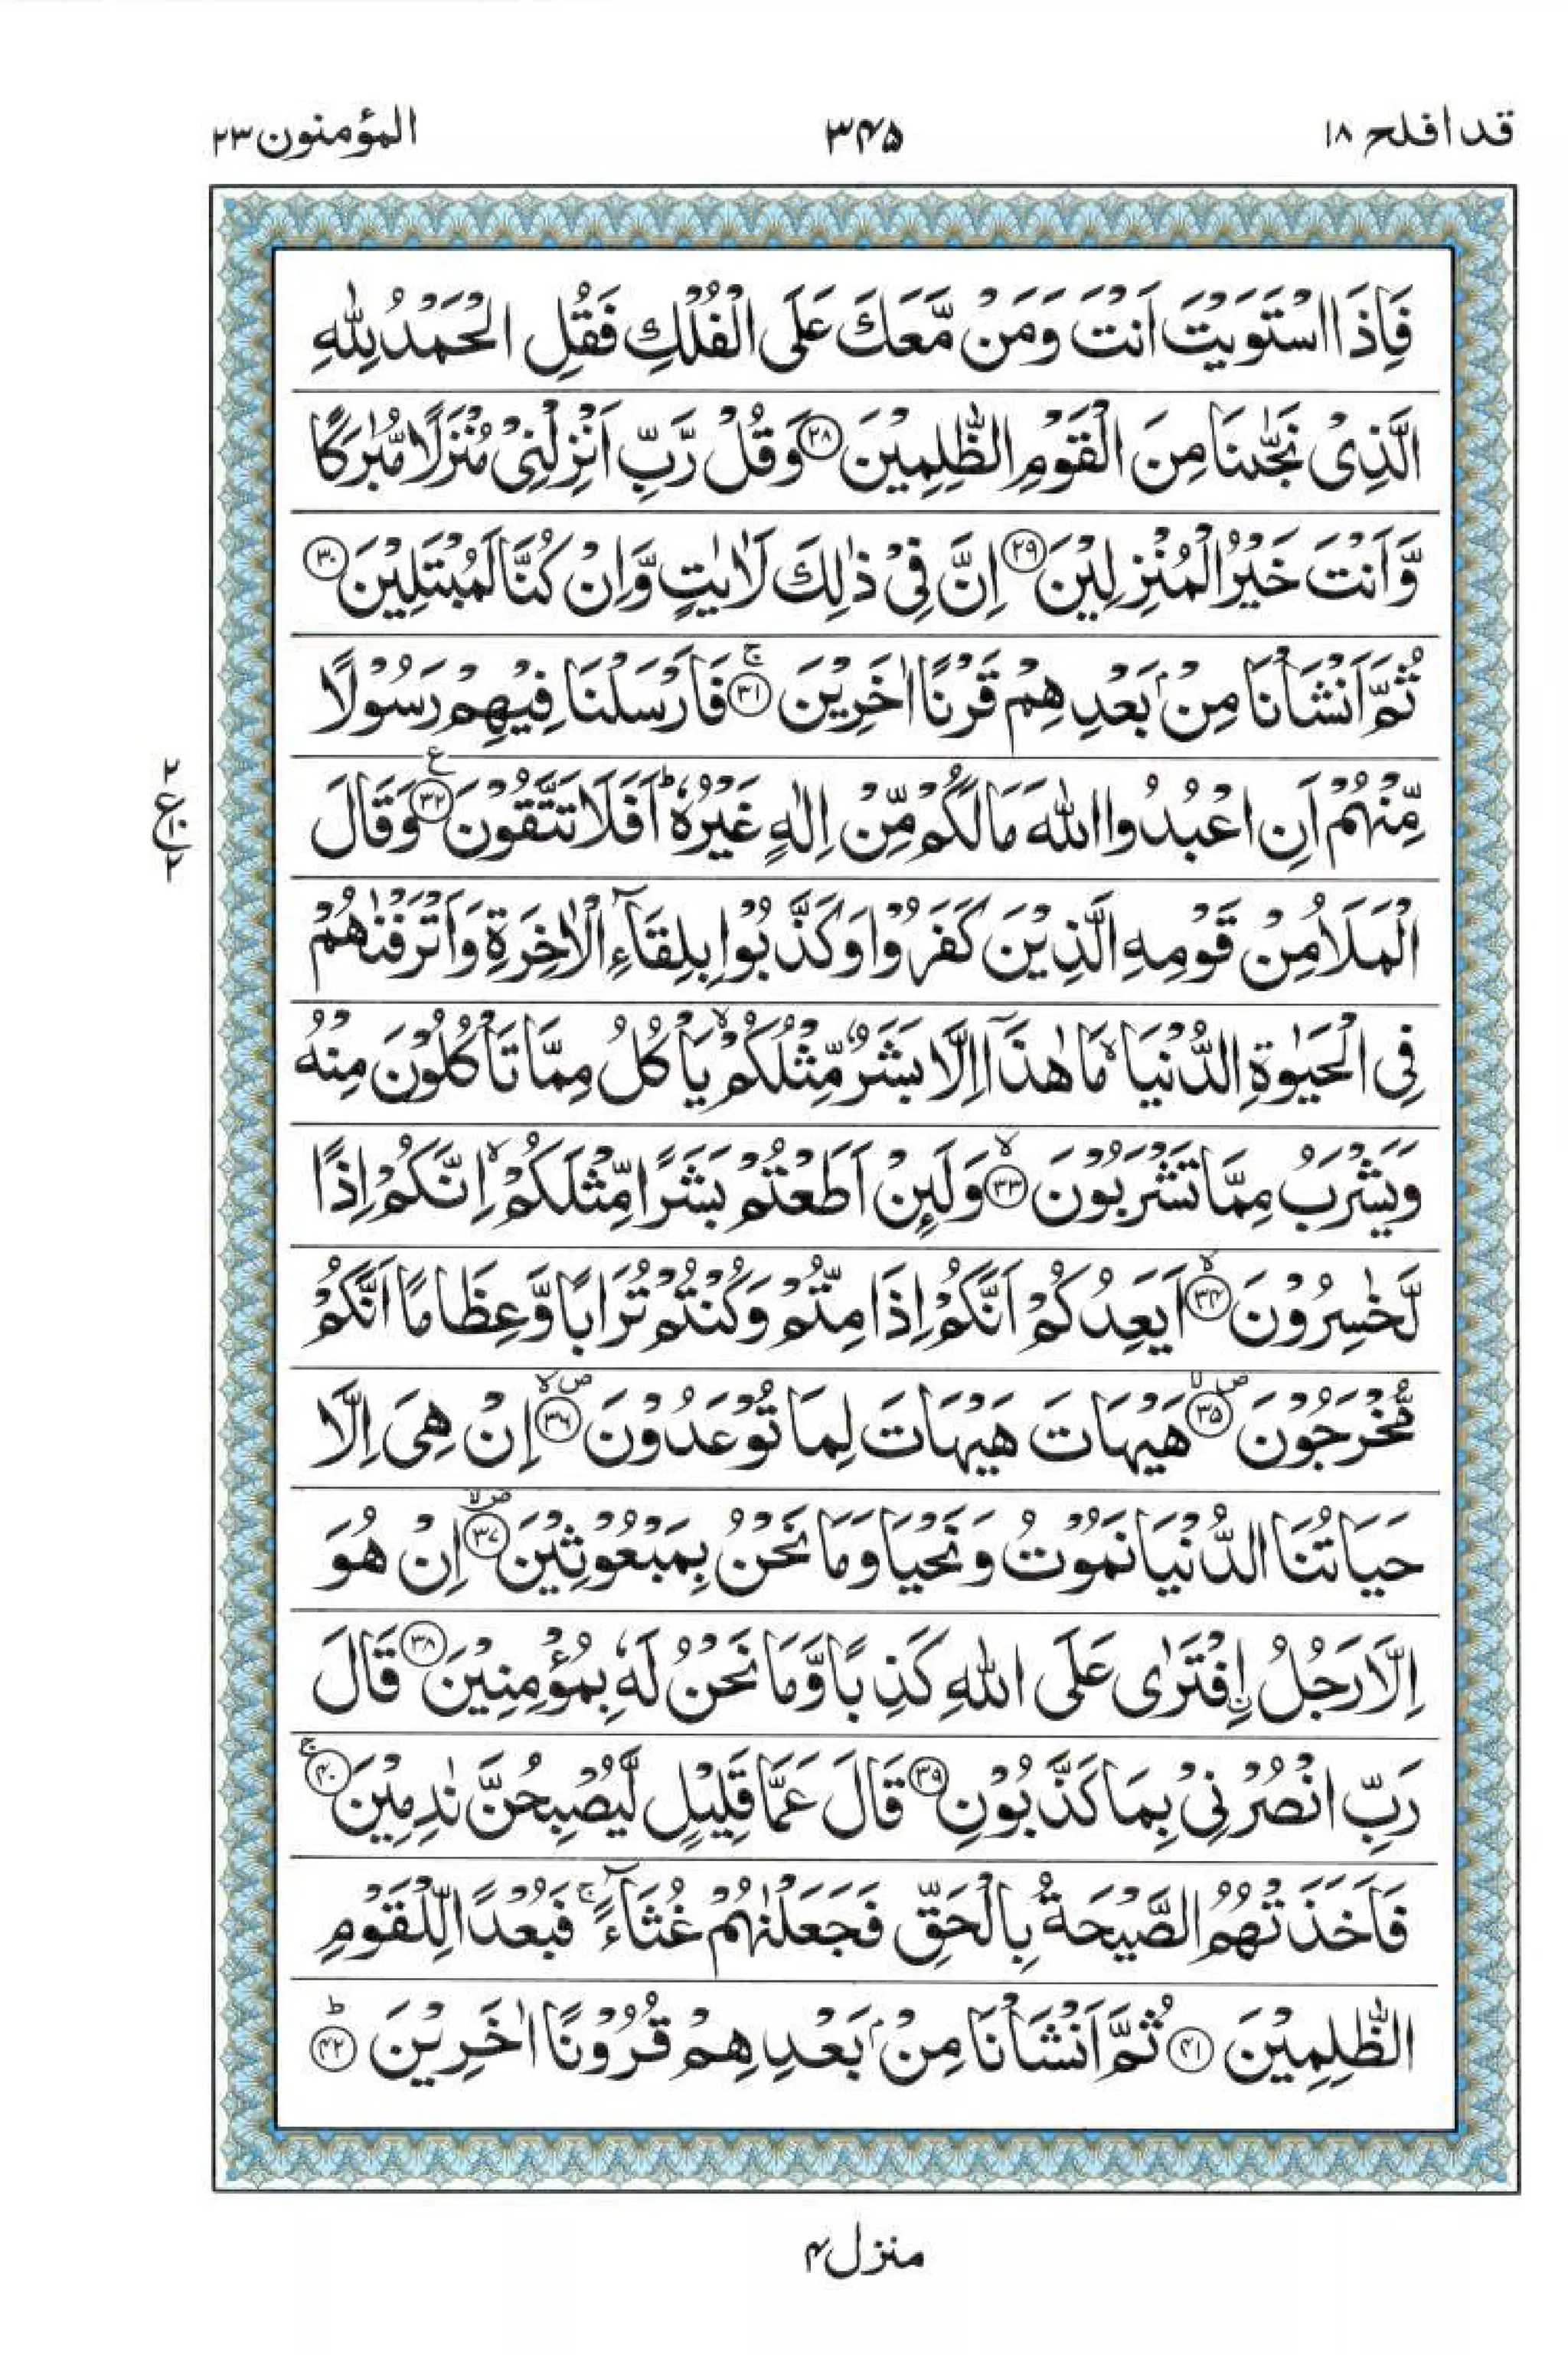 قد افلح ۱۸
۳۴۵
المؤمنون ۲۳
فَاِذَا اسْتَوَيْتَ اَنْتَ وَمَنْ مَّعَكَ عَلَى الْفُلْكِ فَقُلِ الْحَمْدُ لِلّٰهِ
الَّذِىْ نَجّٰىنَا مِنَ الْقَوْمِ الظّٰلِمِيْنَ ۲۸ وَقُلْ رَّبِّ اَنْزِلْنِىْ مُنْزَلًا مُّبٰرَكًا
وَّاَنْتَ خَيْرُ الْمُنْزِلِيْنَ ۲۹ اِنَّ فِىْ ذٰلِكَ لَاٰيٰتٍ وَّاِنْ كُنَّا لَمُبْتَلِيْنَ ۳۰
ثُمَّ اَنْشَاْنَا مِنْۢ بَعْدِهِمْ قَرْنًا اٰخَرِيْنَ ۳۱ۚ فَاَرْسَلْنَا فِيْهِمْ رَسُوْلًا
مِّنْهُمْ اَنِ اعْبُدُوا اللّٰهَ مَا لَكُمْ مِّنْ اِلٰهٍ غَيْرُهٗؕ اَفَلَا تَتَّقُوْنَ ۳۲ ع وَقَالَ
۲ ع ۱۰ ۲
الْمَلَاُ مِنْ قَوْمِهِ الَّذِيْنَ كَفَرُوْا وَكَذَّبُوْا بِلِقَآءِ الْاٰخِرَةِ وَاَتْرَفْنٰهُمْ
فِى الْحَيٰوةِ الدُّنْيَاۙ مَا هٰذَاۤ اِلَّا بَشَرٌ مِّثْلُكُمْۙ يَاْكُلُ مِمَّا تَاْكُلُوْنَ مِنْهُ
وَيَشْرَبُ مِمَّا تَشْرَبُوْنَ ۳۳ۙ وَلَئِنْ اَطَعْتُمْ بَشَرًا مِّثْلَكُمْۙ اِنَّكُمْ اِذًا
لَّخٰسِرُوْنَ ۳۴ۙ اَيَعِدُكُمْ اَنَّكُمْ اِذَا مِتُّمْ وَكُنْتُمْ تُرَابًا وَّعِظَامًا اَنَّكُمْ
مُّخْرَجُوْنَ ۳۵ ص لا هَيْهَاتَ هَيْهَاتَ لِمَا تُوْعَدُوْنَ ۳۶ ص لا اِنْ هِىَ اِلَّا
حَيَاتُنَا الدُّنْيَا نَمُوْتُ وَنَحْيَا وَمَا نَحْنُ بِمَبْعُوْثِيْنَ ۳۷ ص لا اِنْ هُوَ
اِلَّا رَجُلُ اۨفْتَرٰى عَلَى اللّٰهِ كَذِبًا وَّمَا نَحْنُ لَهٗ بِمُؤْمِنِيْنَ ۳۸ قَالَ
رَبِّ انْصُرْنِىْ بِمَا كَذَّبُوْنِ ۳۹ قَالَ عَمَّا قَلِيْلٍ لَّيُصْبِحُنَّ نٰدِمِيْنَ ۴۰ۚ
فَاَخَذَتْهُمُ الصَّيْحَةُ بِالْحَقِّ فَجَعَلْنٰهُمْ غُثَآءًۚ فَبُعْدًا لِّلْقَوْمِ
الظّٰلِمِيْنَ ۴۱ ثُمَّ اَنْشَاْنَا مِنْۢ بَعْدِهِمْ قُرُوْنًا اٰخَرِيْنَ ۴۲ؕ
منزل ۴